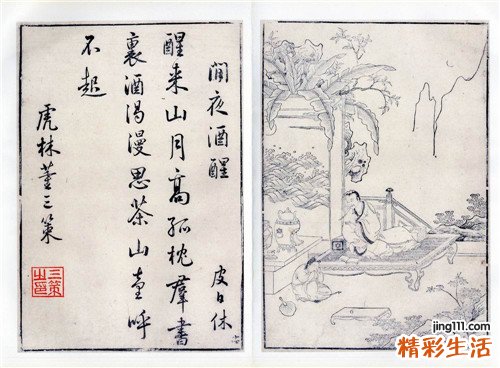 閒夜酒醒
皮日休
醒来山月高孤枕群書
裏酒渴漫思茶山童呼
不起
虎林董三策
三策之印
jing111.com
精彩生活